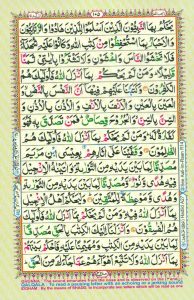 يَحْكُمُ بِهَا النَّبِيُّونَ الَّذِينَ أَسْلَمُوا لِلَّذِينَ هَادُوا وَالرَّبَّانِيُّونَ
وَالْأَحْبَارُ بِمَا اسْتُحْفِظُوا مِنْ كِتَابِ اللَّهِ وَكَانُوا عَلَيْهِ شُهَدَاءَ
فَلَا تَخْشَوُا النَّاسَ وَاخْشَوْنِ وَلَا تَشْتَرُوا بِآيَاتِي ثَمَنًا
قَلِيلًا وَمَنْ لَمْ يَحْكُمْ بِمَا أَنْزَلَ اللَّهُ فَأُولَئِكَ هُمُ
الْكَافِرُونَ وَكَتَبْنَا عَلَيْهِمْ فِيهَا أَنَّ النَّفْسَ بِالنَّفْسِ وَ
الْعَيْنَ بِالْعَيْنِ وَالْأَنْفَ بِالْأَنْفِ وَالْأُذُنَ بِالْأُذُنِ وَ
السِّنَّ بِالسِّنِّ وَالْجُرُوحَ قِصَاصٌ فَمَنْ تَصَدَّقَ بِهِ فَهُوَ
كَفَّارَةٌ لَهُ وَمَنْ لَمْ يَحْكُمْ بِمَا أَنْزَلَ اللَّهُ فَأُولَئِكَ هُمُ
الظَّالِمُونَ وَقَفَّيْنَا عَلَى آثَارِهِمْ بِعِيسَى ابْنِ مَرْيَمَ
مُصَدِّقًا لِمَا بَيْنَ يَدَيْهِ مِنَ التَّوْرَاةِ وَآتَيْنَاهُ الْإِنْجِيلَ
فِيهِ هُدًى وَنُورٌ وَمُصَدِّقًا لِمَا بَيْنَ يَدَيْهِ مِنَ التَّوْرَاةِ
وَهُدًى وَمَوْعِظَةً لِلْمُتَّقِينَ وَلْيَحْكُمْ أَهْلُ الْإِنْجِيلِ بِمَا
أَنْزَلَ اللَّهُ فِيهِ وَمَنْ لَمْ يَحْكُمْ بِمَا أَنْزَلَ اللَّهُ فَأُولَئِكَ هُمُ
الْفَاسِقُونَ وَأَنْزَلْنَا إِلَيْكَ الْكِتَابَ بِالْحَقِّ مُصَدِّقًا
لِمَا بَيْنَ يَدَيْهِ مِنَ الْكِتَابِ وَمُهَيْمِنًا عَلَيْهِ فَاحْكُمْ بَيْنَهُمْ
QALQALA : To read a pausing letter with an echoing or a jerking sound